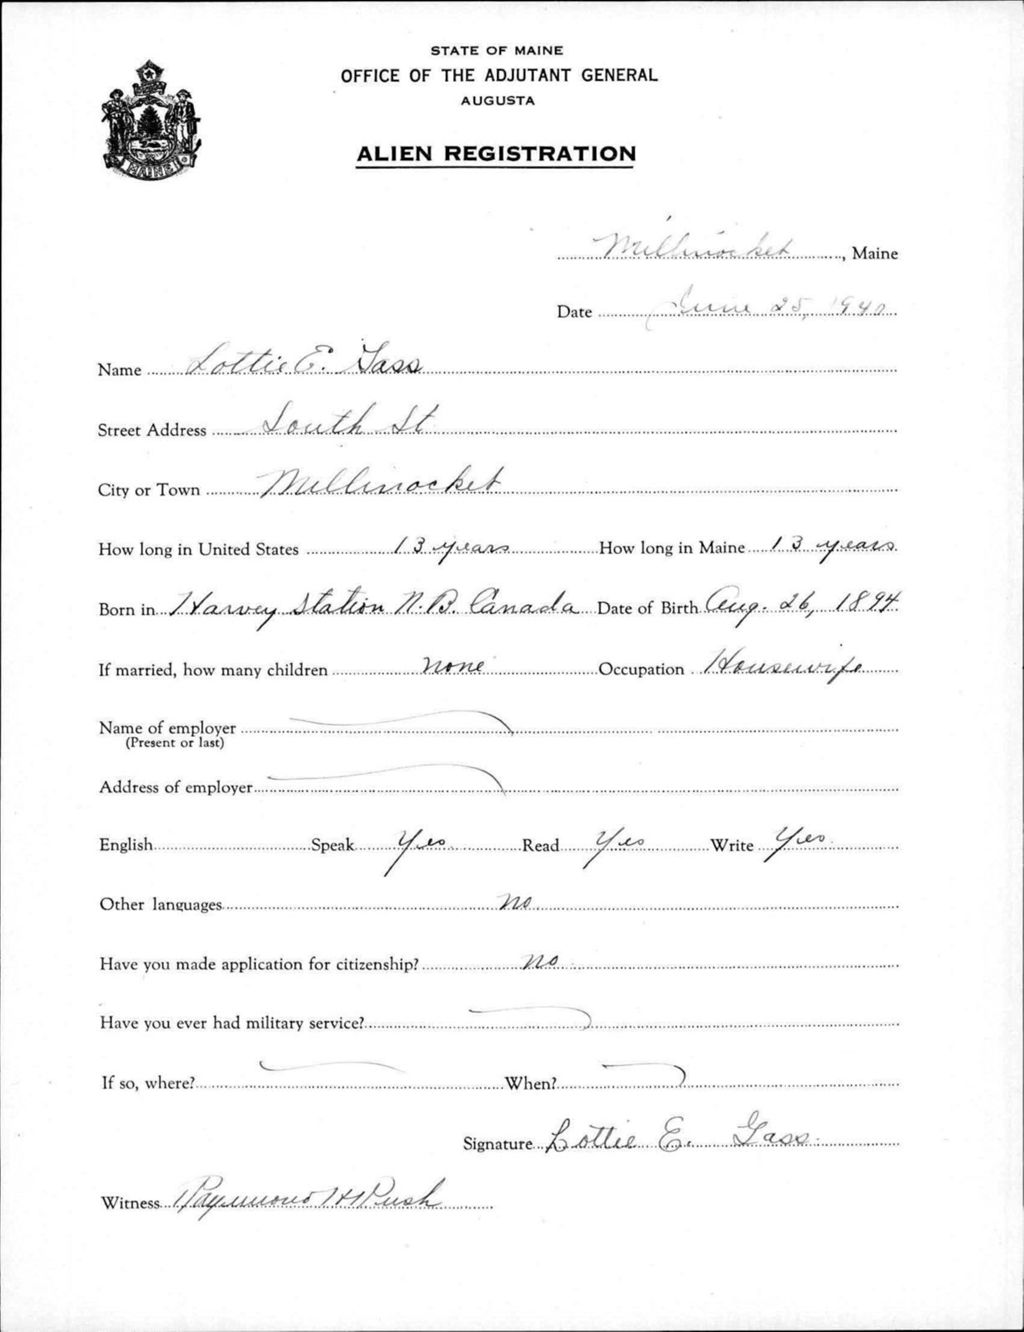 STATE OF MAINE
OFFICE OF THE ADJUTANT GENERAL
AUGUSTA
ALIEN REGISTRATION
MAINE
Millinocket, Maine
Date June 25, 1940
Name Lottie E. Gass
Street Address South St
City or Town Millinocket
How long in United States 13 years How long in Maine 13 years
Born in Harvey Station N.B. Canada Date of Birth Aug. 26, 1894
If married, how many children none Occupation Housewife
Name of employer
(Present or last)
Address of employer
English Speak Yes Read Yes Write Yes
Other languages no
Have you made application for citizenship? no
Have you ever had military service?
If so, where? When?
Signature Lottie E. Gass
Witness Raymond H Rush